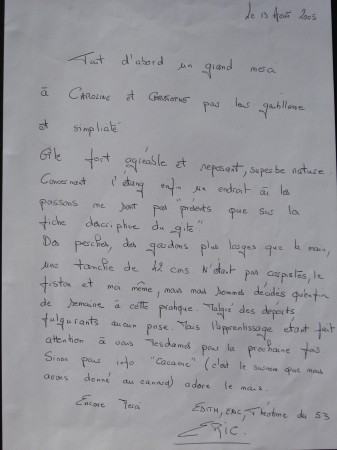 Le 13 Août 2005
Tout d'abord un grand merci
à CAROLINE et CHRISTOPHE par leur gentillesse
et simplicité
Gîte fort agréable et reposant, superbe nature.
Concernant l'étang enfin un endroit où les
poissons ne sont pas "présents que sur la
fiche descriptive du gîte"
Des perches, des gardons plus larges que la main,
une tanche de 42 cms N'étant pas carpistes, le
fiston et moi même, mais nous sommes décidés qu'en fin
de semaine à cette pratique. Malgré des départs
fulgurants aucun pose. Mais l'apprentissage étant fait
attention à vous Mesdames pour la prochaine fois
Sinon pour info "Cacane" (c'est le surnom que nous
avons donné au canard) adore le maïs.
Encore Merci
EDITH, ERIC, Théotime du 53
ERIC.